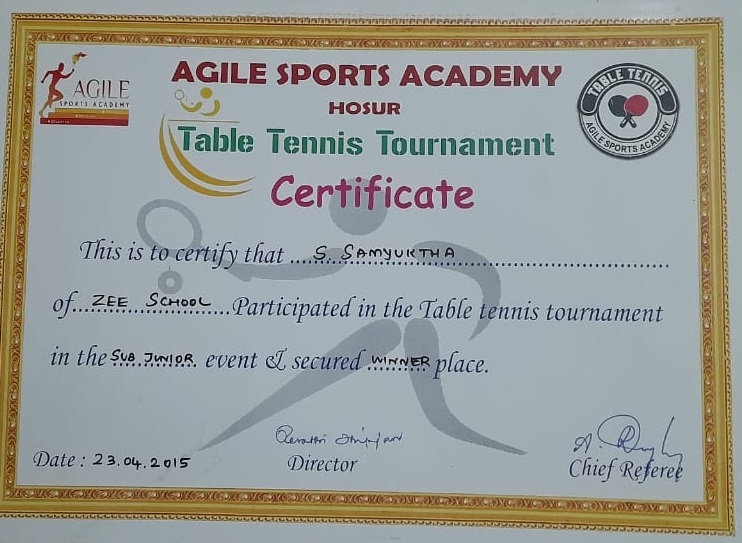 AGILE
SPORTS ACADEMY
AGILE SPORTS ACADEMY
HOSUR
Table Tennis Tournament
Certificate
TABLE TENNIS
AGILE SPORTS ACADEMY
This is to certify that ....S. SAMYUKTHA....
of....ZEE SCHOOL....Participated in the Table tennis tournament
in the SUB JUNIOR event & secured WINNER place.
Date : 23.04.2015
Director
Chief Referee